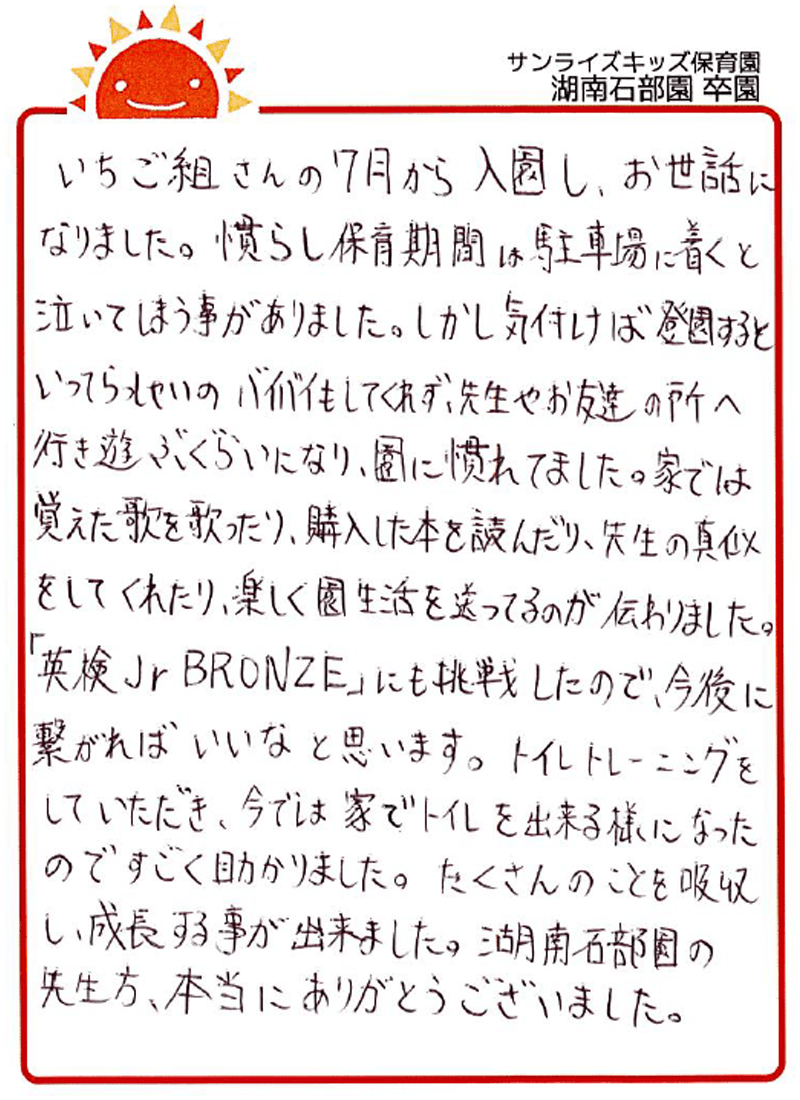 サンライズキッズ保育園
湖南石部園 卒園
いちご組さんの7月から入園し、お世話に
なりました。慣らし保育期間は駐車場に着くと
泣いてしまう事がありました。しかし気付けば登園すると
いってらっしゃいのバイバイもしてくれず、先生やお友達の所へ
行き遊ぶくらいになり、園に慣れてました。家では
覚えた歌を歌ったり、購入した本を読んだり、先生の真似
をしてくれたり、楽しく園生活を送ってるのが伝わりました。
「英検Jr BRONZE」にも挑戦したので、今後に
繋がればいいなと思います。トイレトレーニングを
していただき、今では家でトイレを出来る様になった
のですごく助かりました。たくさんのことを吸収
し、成長する事が出来ました。湖南石部園の
先生方、本当にありがとうございました。